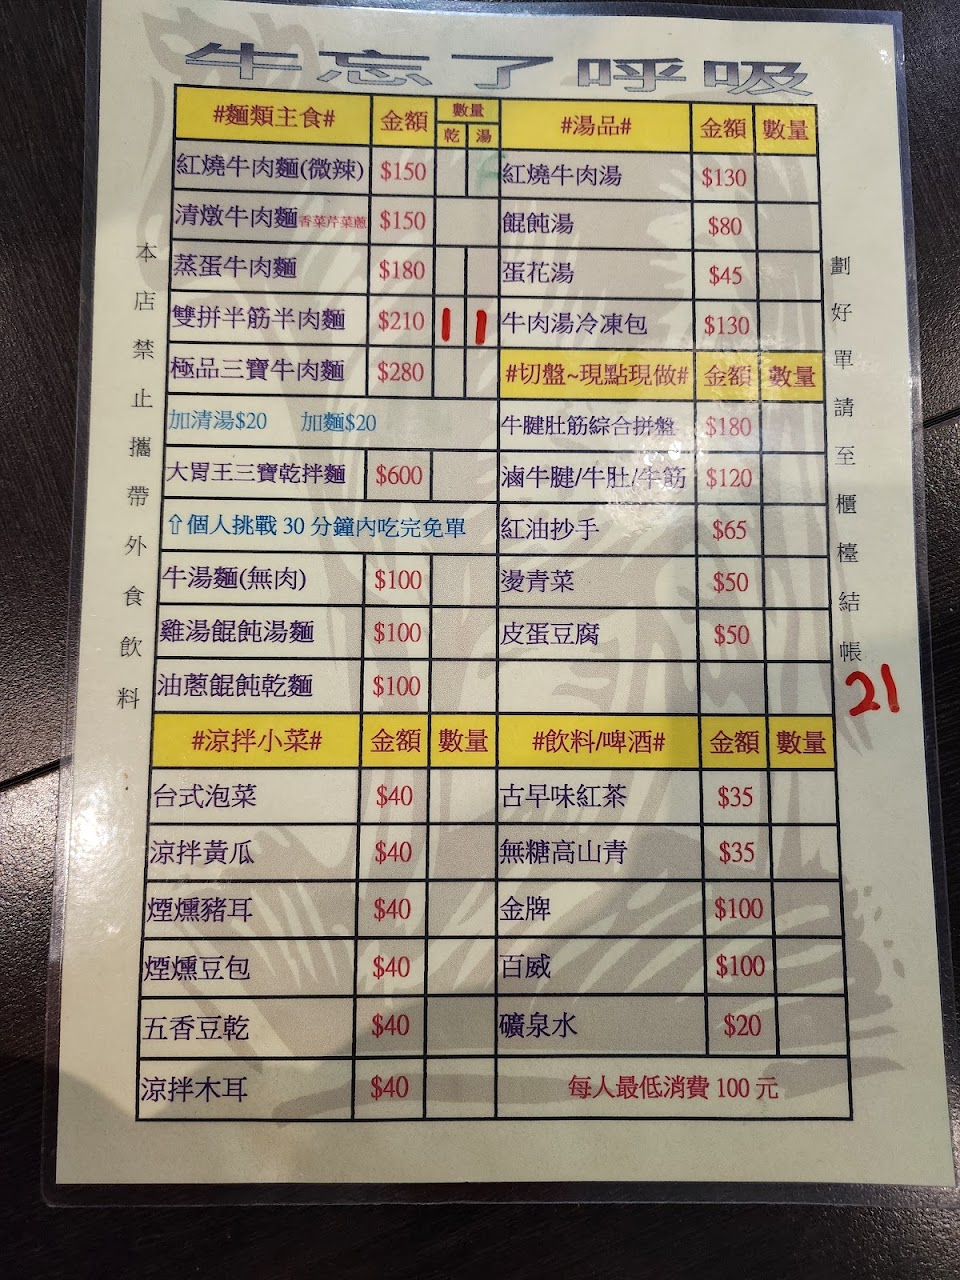 牛忘了呼吸
#麵類主食# 金額 數量 乾 湯
紅燒牛肉麵(微辣) $150
清燉牛肉麵香菜芹菜蔥 $150
蒸蛋牛肉麵 $180
雙拼半筋半肉麵 $210 1 1
極品三寶牛肉麵 $280
加清湯$20 加麵$20
大胃王三寶乾拌麵 $600
⇧個人挑戰 30 分鐘內吃完免單
牛湯麵(無肉) $100
雞湯餛飩湯麵 $100
油蔥餛飩乾麵 $100
#湯品# 金額 數量
紅燒牛肉湯 $130
餛飩湯 $80
蛋花湯 $45
牛肉湯冷凍包 $130
#切盤~現點現做# 金額 數量
牛腱肚筋綜合拼盤 $180
滷牛腱/牛肚/牛筋 $120
紅油抄手 $65
燙青菜 $50
皮蛋豆腐 $50
#涼拌小菜# 金額 數量
台式泡菜 $40
涼拌黃瓜 $40
煙燻豬耳 $40
煙燻豆包 $40
五香豆乾 $40
涼拌木耳 $40
#飲料/啤酒# 金額 數量
古早味紅茶 $35
無糖高山青 $35
金牌 $100
百威 $100
礦泉水 $20
每人最低消費 100 元
本店禁止攜帶外食飲料
劃好單請至櫃檯結帳
21